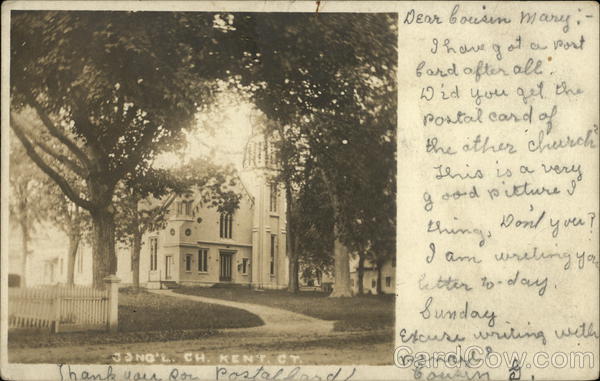 Dear Cousin Mary:-
I have got a post
Card after all.
Did you get the
postal card of
the other church?
This is a very
good pitture I
thing, Don't you?
I am writing you
letter to-day.
Sunday
Excuse writing with
Cousin
CardCow.com
CONG'L. CH. KENT. CT.
Thank you for Postal Card!